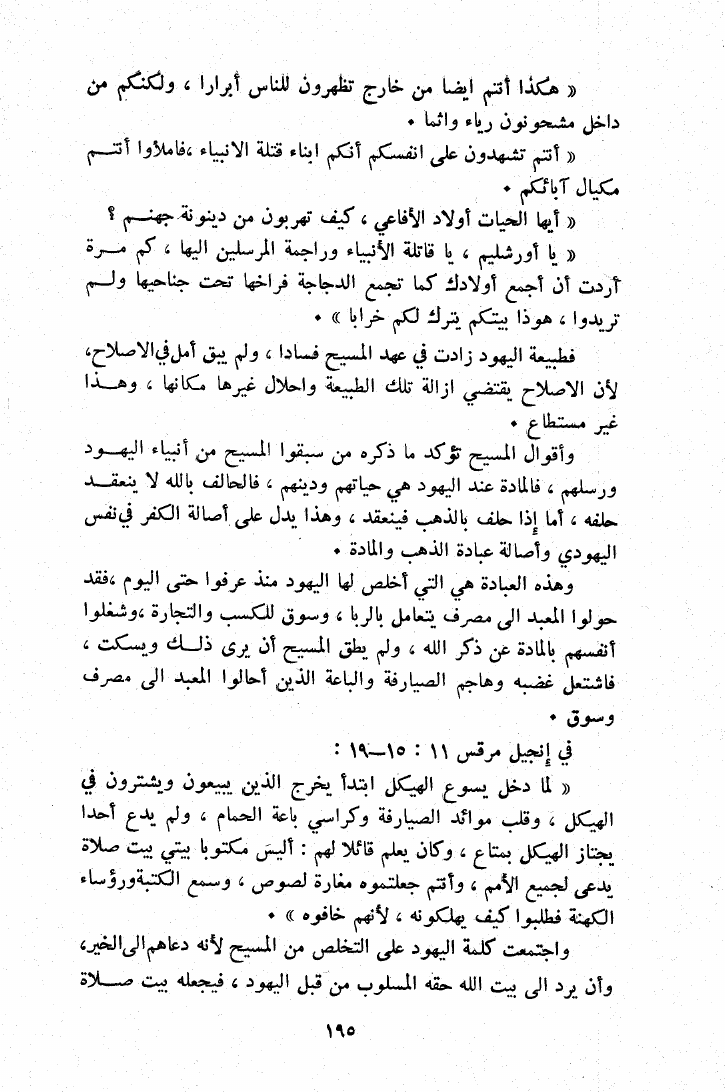 « هكذا أنتم ايضا من خارج تظهرون للناس أبرارا ، ولكنكم من
داخل مشحونون رياء واثما .
« أنتم تشهدون على انفسكم أنكم ابناء قتلة الانبياء ،فاملأوا أنتــم
مكيال آبائكم .
« أيها الحيات أولاد الأفاعي ، كيف تهربون من دينونة جهنــم ؟
« يا أورشليم ، يا قاتلة الأنبياء وراجمة المرسلين اليها ، كم مــرة
أردت أن أجمع أولادك كما تجمع الدجاجة فراخها تحت جناحيها ولــم
تريدوا ، هوذا بيتكم يترك لكم خرابا » .
فطبيعة اليهود زادت في عهد المسيح فسادا ، ولم يبق أمل في الاصلاح،
لأن الاصلاح يقتضي ازالة تلك الطبيعة واحلال غيرها مكانها ، وهــذا
غير مستطاع .
وأقوال المسيح تؤكد ما ذكره من سبقوا المسيح من أنبياء اليهــود
ورسلهم ، فالمادة عند اليهود هي حياتهم ودينهم ، فالحالف بالله لا ينعقــد
حلفه ، أما إذا حلف بالذهب فينعقد ، وهذا يدل على أصالة الكفر في نفس
اليهودي وأصالة عبادة الذهب والمادة .
وهذه العبادة هي التي أخلص لها اليهود منذ عرفوا حتى اليوم ،فقد
حولوا المعبد الى مصرف يتعامل بالربا ، وسوق للكسب والتجارة ،وشغلوا
أنفسهم بالمادة عن ذكر الله ، ولم يطق المسيح أن يرى ذلــك ويسكت ،
فاشتعل غضبه وهاجم الصيارفة والباعة الذين أحالوا المعبد الى مصرف
وسوق .
في إنجيل مرقس ١١ : ١٥–١٩ :
« لما دخل يسوع الهيكل ابتدأ يخرج الذين يبيعون ويشترون في
الهيكل ، وقلب موائد الصيارفة وكراسي باعة الحمام ، ولم يدع أحدا
يجتاز الهيكل بمتاع ، وكان يعلم قائلا لهم : أليس مكتوبا بيتي بيت صلاة
يدعى لجميع الأمم ، وأنتم جعلتموه مغارة لصوص ، وسمع الكتبةورؤساء
الكهنة فطلبوا كيف يهلكونه ، لأنهم خافوه » .
واجتمعت كلمة اليهود على التخلص من المسيح لأنه دعاهم الى الخير،
وأن يرد الى بيت الله حقه المسلوب من قبل اليهود ، فيجعله بيت صــلاة
١٩٥